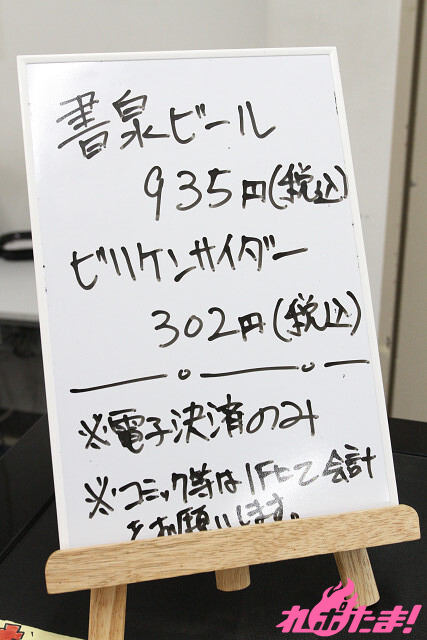 書泉ビール
935円(税込)
ビリケンサイダー
302円(税込)
※電子決済のみ
※コミック等は1Fにて会計
をお願いします。
れポたま!